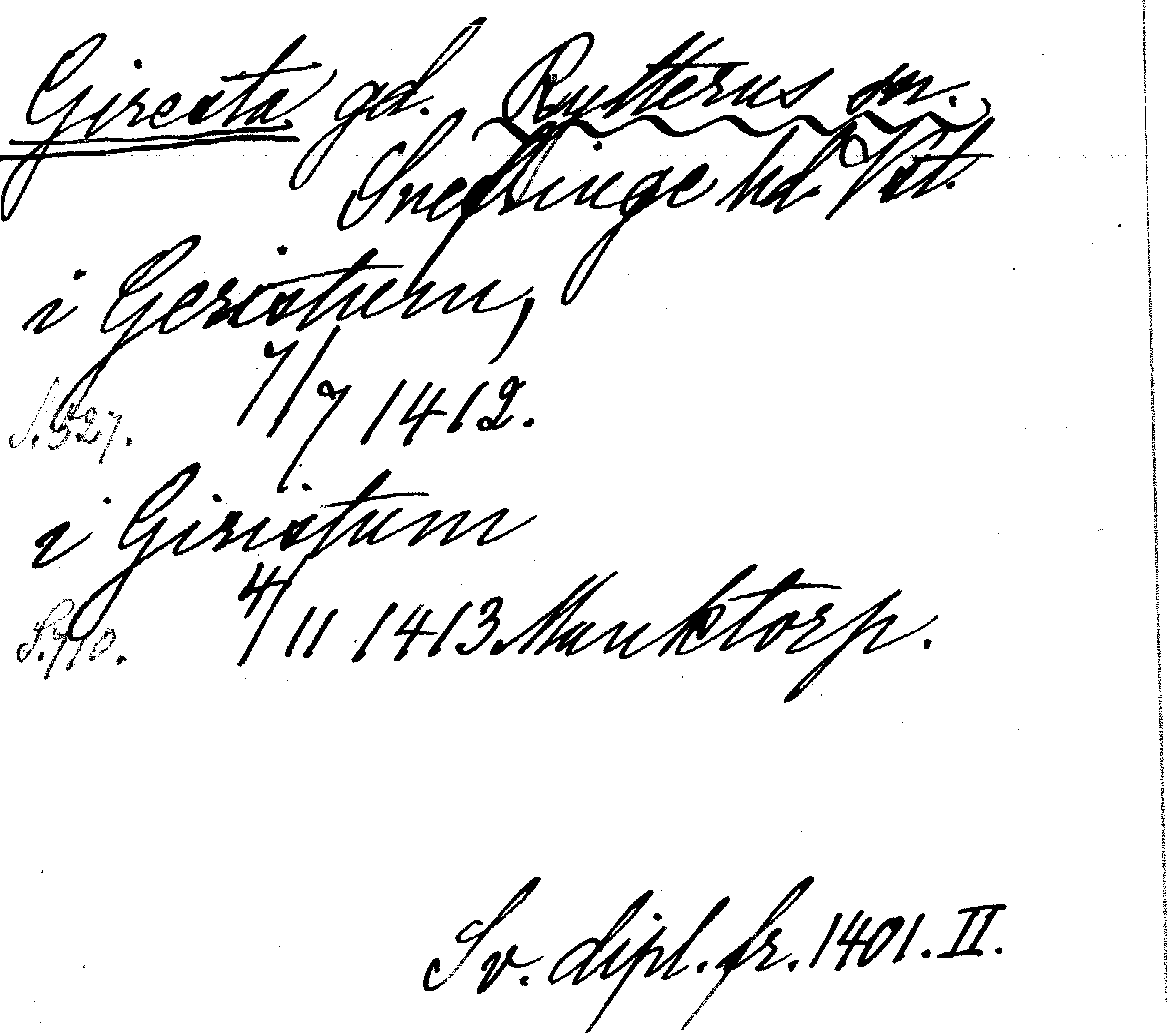 Giresta gd. Rytterns sn.
Snefringe hd. Vstt.
i Geristum,
7/7 1412.
S. 527.
i Giristum
4/11 1413 Munktorp.
S. 710.
Sv. dipl. fr. 1401. II.